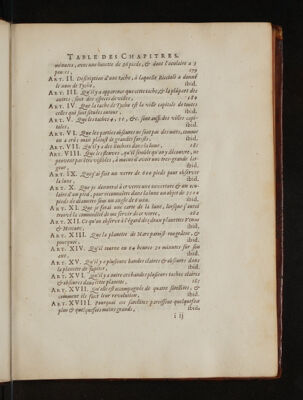 TABLE DES CHAPITRES.
minutes, avec une lunette de 26 pieds, & dont l'oculaire a 3
pouces, 179
ART. II. Description d'une tache, à laquelle Riccioli a donné
le nom de Tycho, ibid.
ART. III. Qu'il y a apparence que cette tache, & la plûpart des
autres, sont des especes de villes, 180
ART. IV. Que la tache de Tycho est la ville capitale de toutes
celles qui sont situées autour, ibid.
ART. V. Que les taches 4, 5, &c. sont aussi des villes capi-
tales, ibid.
ART. VI. Que les parties obscures ne sont pas des mers, comme
on a crû; mais plutost de grandes forests, ibid.
ART. VII. Qu'il y a des lumieres dans la lune, 181
ART. VIII. Que les rivieres, qu'il semble qu'on y découvre, ne
peuvent pas être visibles, à moins d'avoir une tres-grande lar-
geur, ibid.
ART. IX. Qu'il se fait un verre de 600 pieds pour observer
la lune, ibid.
ART. X. Que je donnerai à ce verre une ouverture & un ocu-
laire d'un pied, pour reconnoître dans la lune un objet de 200
pieds de diametre sous un angle de 6 min. ibid.
ART. XI. Que je ferai une carte de la lune, lorsque j'aurai
trouvé la commodité de me servir de ce verre, 182
ART. XII. Ce qu'on observe à l'égard des deux planetes Venus
& Mercure, ibid.
ART. XIII. Que la planete de Mars paroist rougeâtre, &
pourquoi, ibid.
ART. XIV. Qu'il tourne en 24 heures 40 minutes sur son
axe, ibid.
ART. XV. Qu'il y a plusieurs bandes claires & obscures dans
la planete de Jupiter, ibid.
ART. XVI. Qu'il y a outre ces bandes plusieurs taches claires
& obscures dans cette planete, 183
ART. XVII. Qu'elle est accompagnée de quatre satellites, &
comment ils font leur revolution, ibid.
ART. XVIII. Pourquoi ces satellites paroissent quelquefois
plus & quelquefois moins grands, ibid.
i ij